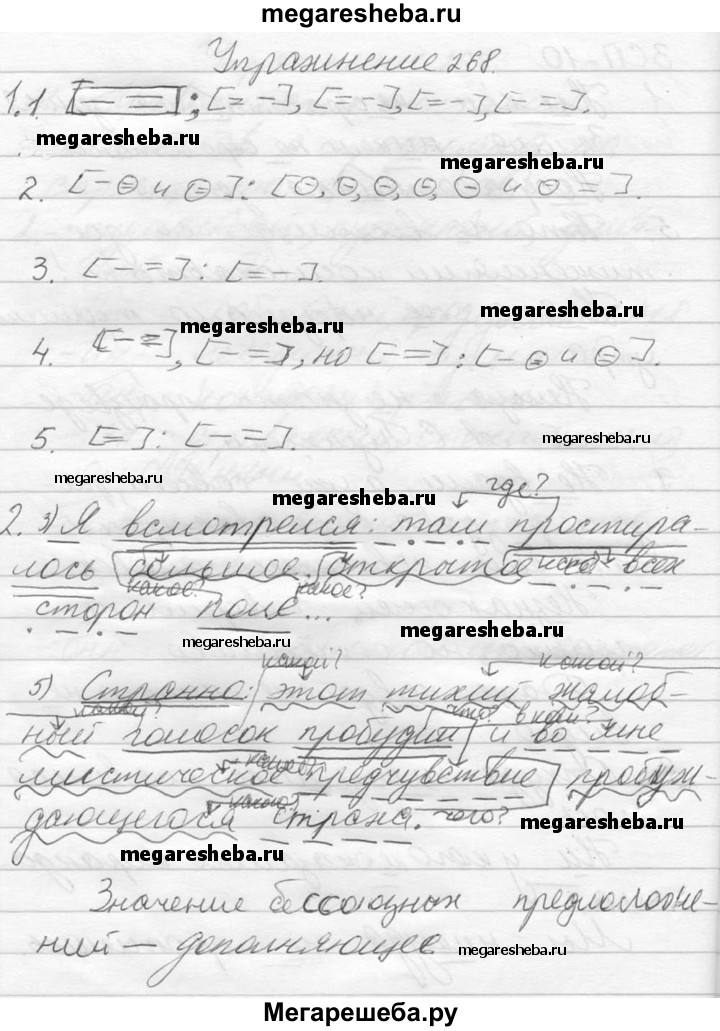 megaresheba.ru
Упражнение 268.
1.1 [— =]; [= —], [= —], [= —], [— =].
megaresheba.ru
megaresheba.ru
2. [— ⊖ и ⊖]: [⊖, ⊖, ⊖, ⊖, ⊖ и ⊖ =].
3. [— =]: [= —].
megaresheba.ru
megaresheba.ru
4. [— =], [— =], но [— =]: [— ⊖ и ⊖].
5. [=]: [— =].
megaresheba.ru
megaresheba.ru
megaresheba.ru
где?
2. 3) Я всмотрелся: там простира-
лось большое открытое со всех
какое? какое?
сторон поле...
megaresheba.ru
megaresheba.ru
какой? какой?
5) Странно: этот тихий жалоб-
какой? что? в ком?
ный голосок пробудил и во мне
какое?
мистическое предчувствие пробуж-
какого? чего?
дающегося страха.
megaresheba.ru
megaresheba.ru
Значение бессоюзных предложе-
ний — дополняющее
megaresheba.ru
Мегарешеба.ру